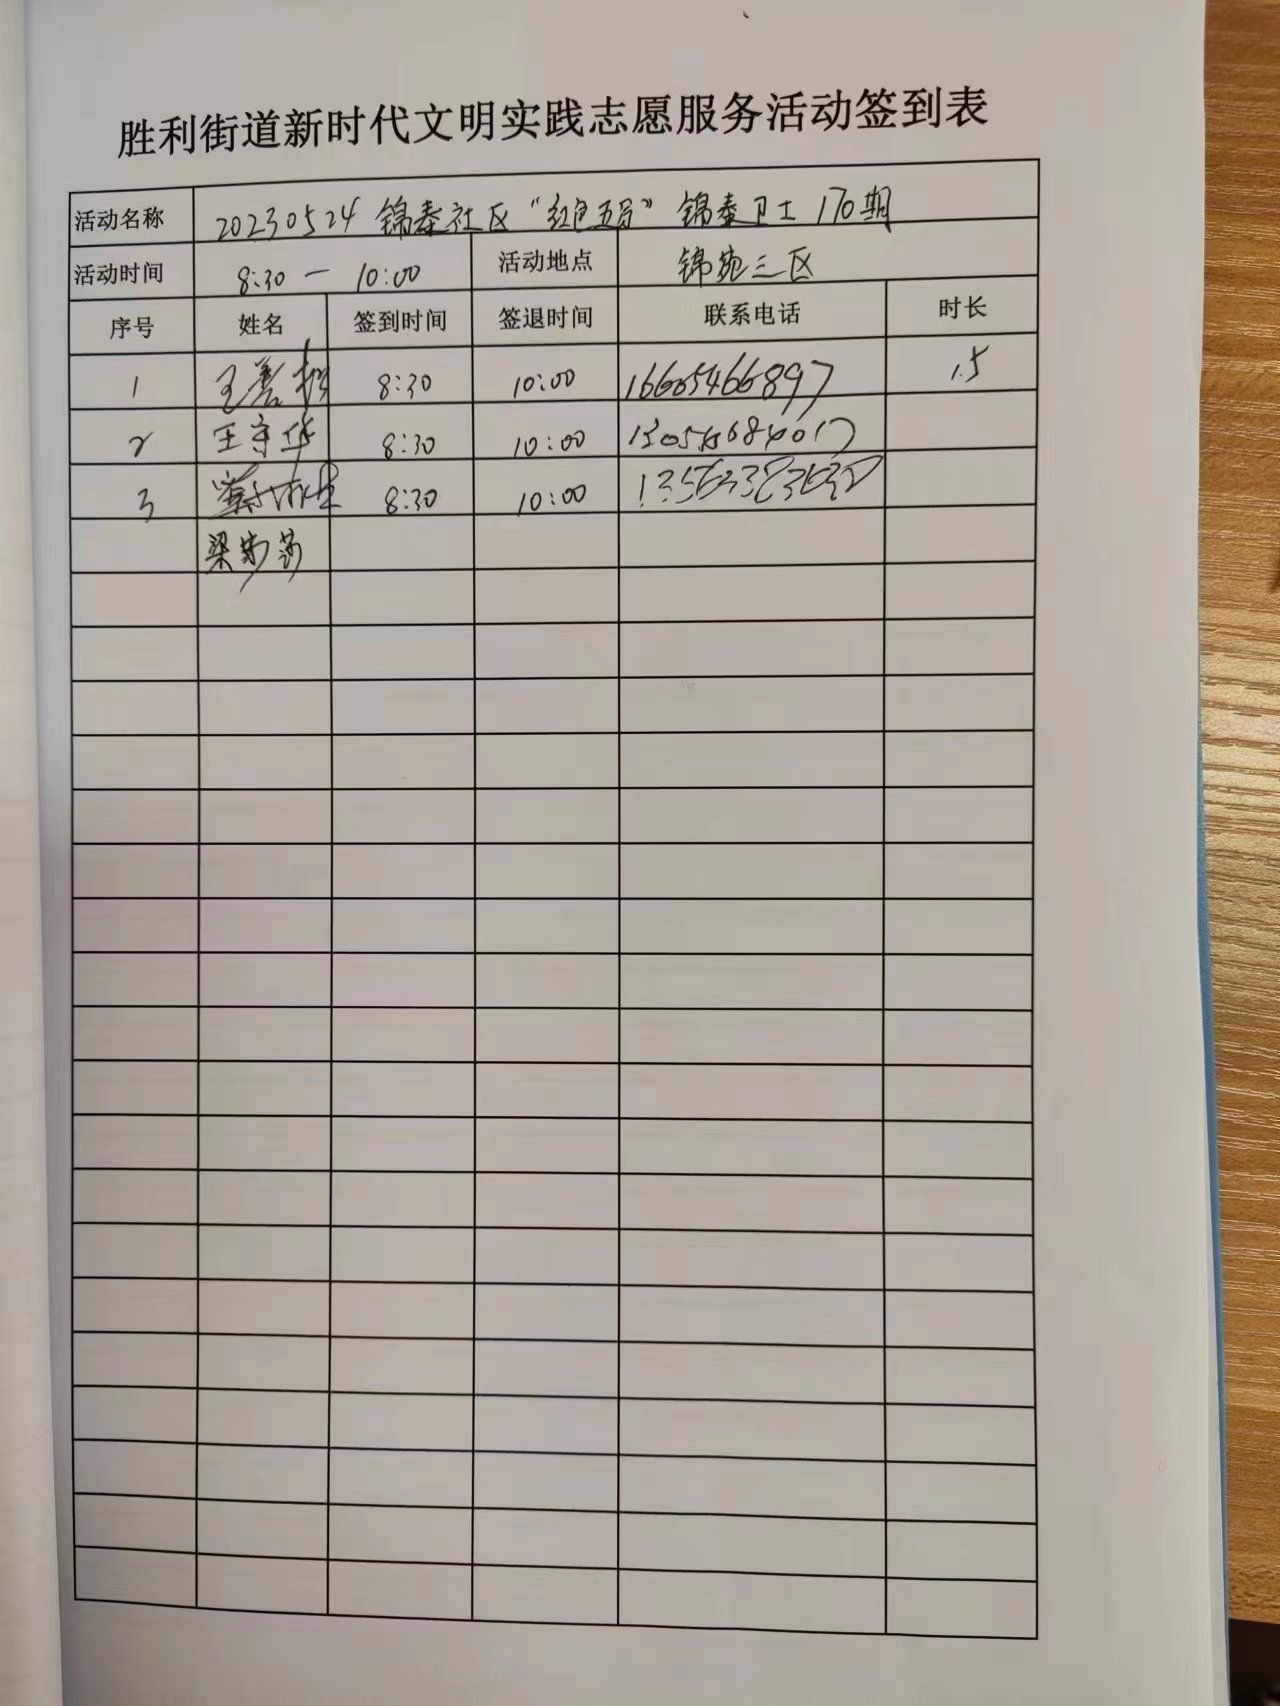 胜利街道新时代文明实践志愿服务活动签到表
活动名称 20230524 锦泰社区“红色五号”锦泰卫士 170期
活动时间 8:30 — 10:00 活动地点 锦苑三区
序号 姓名 签到时间 签退时间 联系电话 时长
1 王善 8:30 10:00 16605466897 1.5
2 王守华 8:30 10:00
3 8:30 10:00
梁莎莎